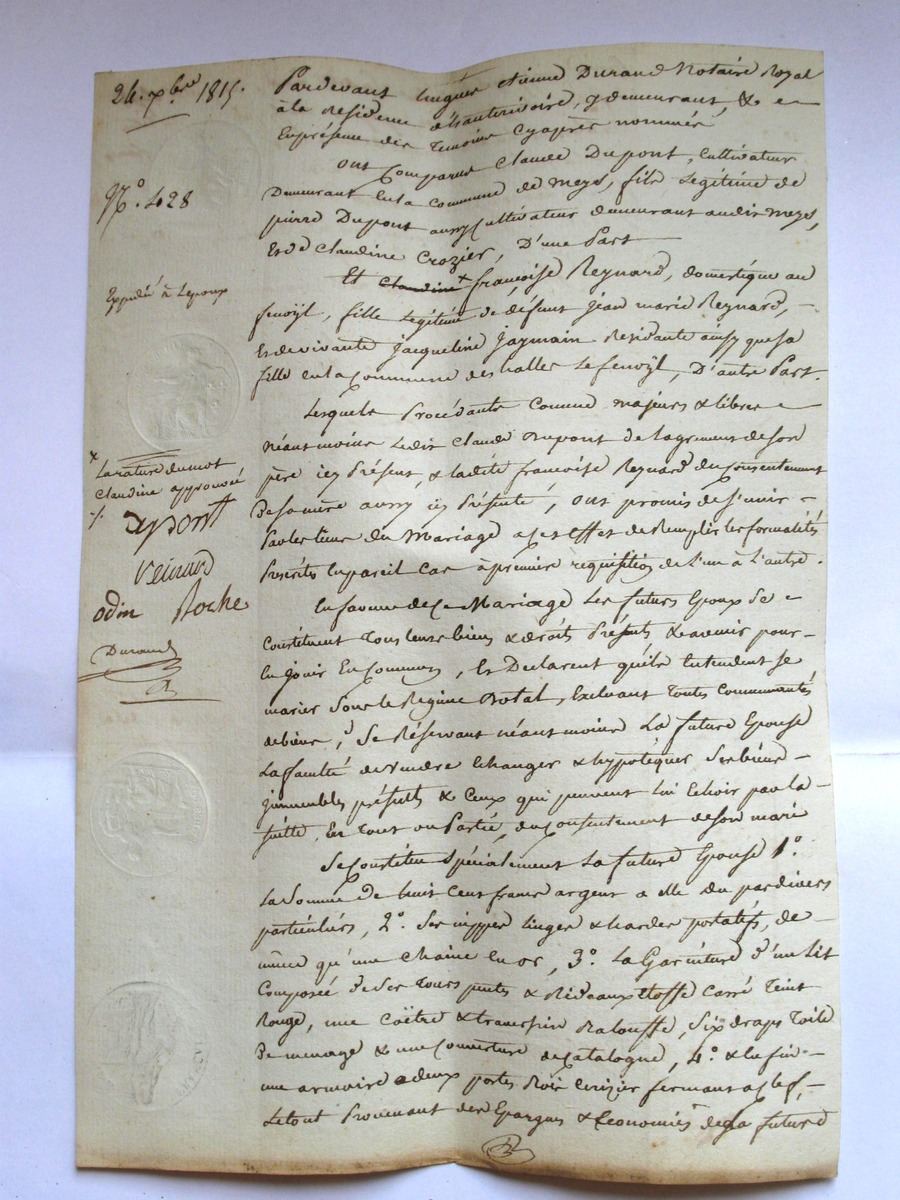 24. xbre 1815.
N.º 428
Expédié à Lepoux
x
La rature du mot
Claudine approuvée
./.
dupont
reinard
odin Roche
Durand
Pardevant Etienne Durand Notaire Royal
à la Residence d'hauterivoire, y demeurant, &
En présence des Temoins Cyaprès nommés
Ont Comparus Claude Dupont, Cultivateur
Demeurant en la Commune de Meys, fils Legitime de
pierre Dupont aussy Cultivateur demeurant audit meys,
Et de Claudine Crozier, D'une Part
Et Claudine x françoise Reynard, domestique au
fenoÿl, fille Legitime de défunt Jean marie Reynard,
Et de vivante Jacqueline Jaymain Residante ainsy que sa
fille en la Commune des halles Le fenoÿl, D'autre Part.
Lesquels Procédants Comme majeurs & libres
Néantmoins Ledit Claude Dupont de l'agrement de son
père icy Présent, & ladite françoise Reynard du Consentement
De sa mère aussy icy Présente, ont promis de s'unir
Par les liens du Mariage a cet effet de Remplir les formalités
Prescrites en pareil Cas à premiere réquisition de l'un à L'autre.
En faveur de Ce Mariage Les futurs Epoux Se
Constituent Tous leurs biens & droits Présents & avenir pour
En Jouir En Commun, Et Declarent qu'ils Entendent se
marier Sous le Regime Dotal, Excluant Toutes Communautés
de biens, Se Réservant néantmoins La future Epouse
La faculté de vendre Echanger & hypotéquer Ses biens
Immeubles présents & Ceux qui peuvent lui Echoir par la
suitte, En Tout ou Partie, du Consentement de son mari
Se Constitue Spécialement La future Epouse 1.º
La Somme de huit Cent francs argent a elle du par divers
particuliers, 2.º Ses nippes linges & hardes portatifs, de
même qu'une Chaine en or, 3.º La Garniture d'un Lit
Composée de Ses Tours pentes & Rideaux Etoffe Carré Teint
Rouge, une Coëtre & traversin Balouffe, Six draps Toile
De menage & une Couverture de Catalogne, 4.º & Enfin
une armoire a deux portes Bois Cerizier fermant a Clef,
Le tout Provenant des Epargnes & Economies de la future